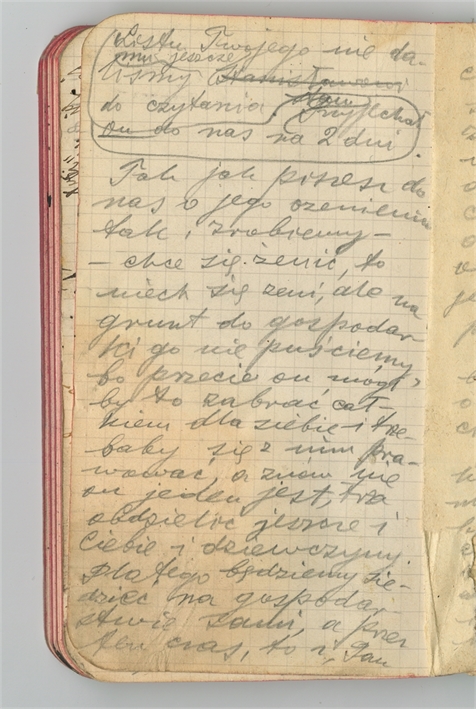 Listu Twojego nie da-
mu jeszcze
liśmy Stanisławowi
do czytania. Przyjechał
on do nas na 2 dni.
Tak jak piszesz do
nas o jego ożenieniu
tak i zrobiemy –
– chce się żenić, to
niech się żeni, ale na
grunt do gospodar-
ki go nie puściemy,
bo przecie on mógł
by to zabrać cał-
kiem dla siebie i trze-
baby się z nim pra-
wować, a znów nie
on jeden jest, trza
obdzielić jeszcze i
Ciebie i dziewczyny.
Dlatego będziemy sie-
dzieć na gospodar-
stwie sami, a przez
ten czas, to i Pan